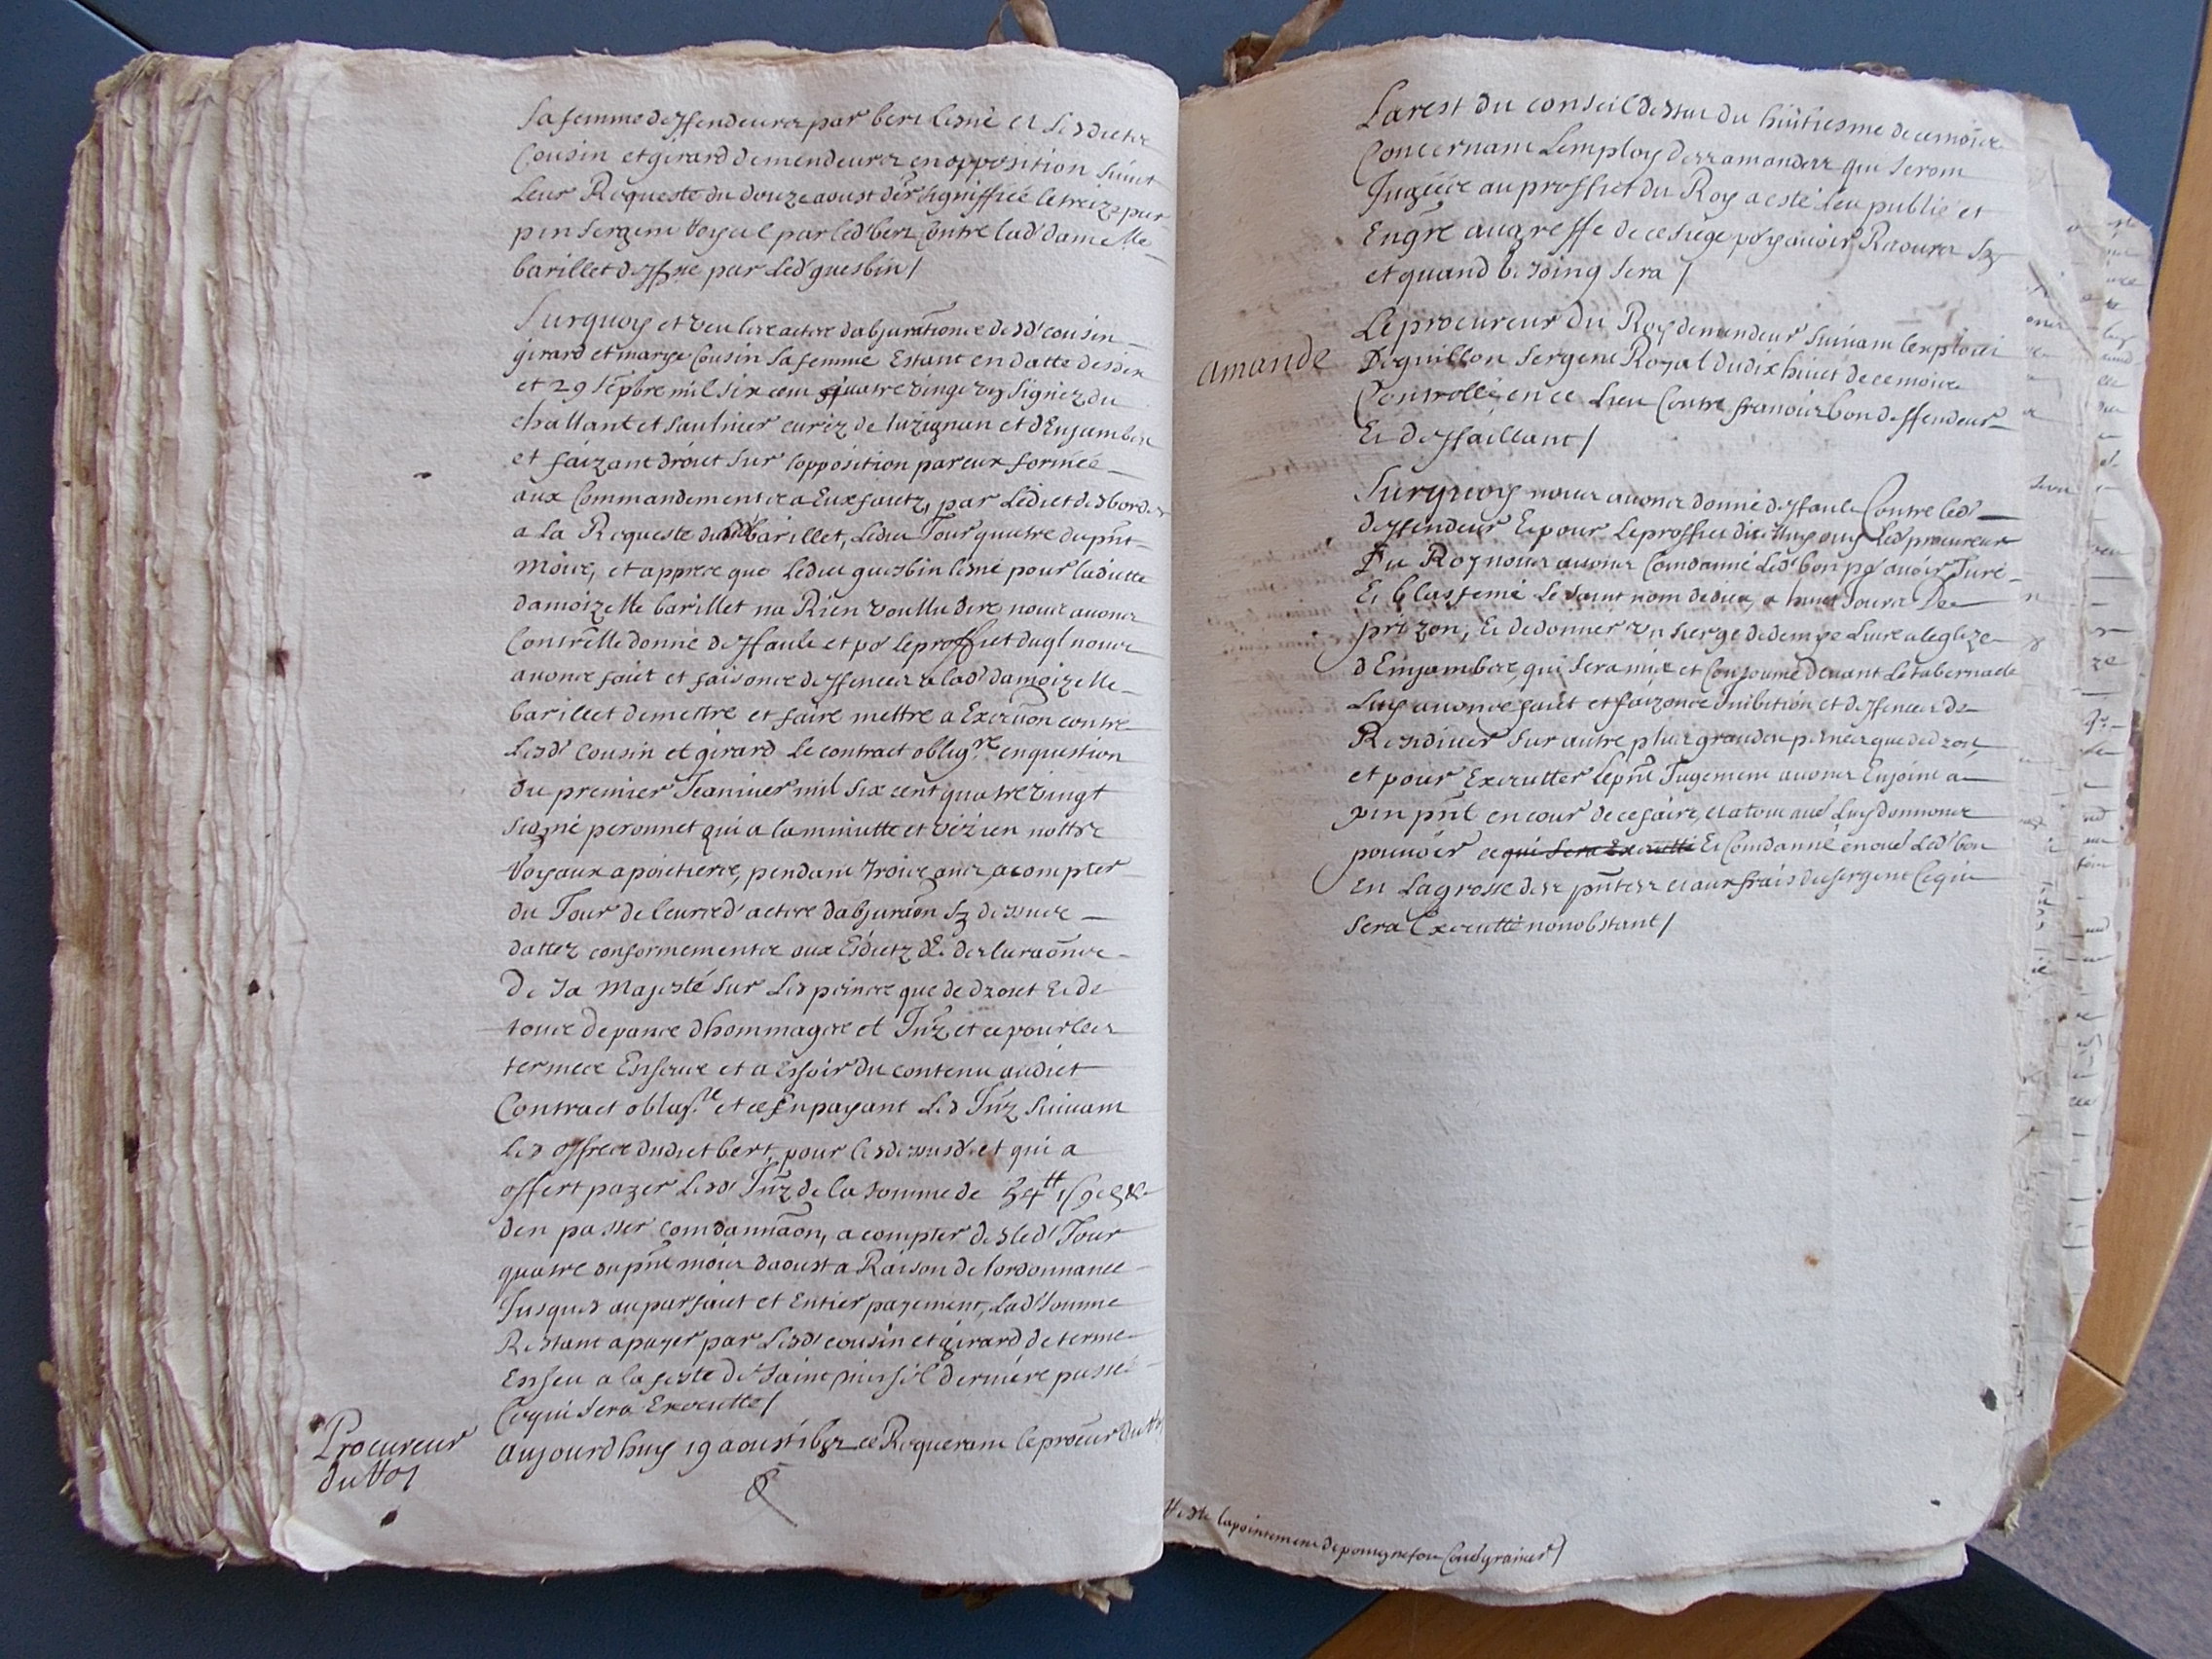 sa femme deffendeurs par bert lesné et lesdicts
Cousin et girard demendeurs en opposition suivt
leur Requeste du douze aoust der signiffiée le treize par
pin sergent Royal par led' bert Contre lad' damelle
barillet deffse par led' guesbin /
Surquoy et veu les actes dabjurations desd' cousin
girard et marye Cousin sa femme Estant en datte des dix
et 29 sepbre mil six cent quatre vingt un signez du
chattant et saulnier curéz de luzignan et dEnjambes
et faizant droict sur lopposition par eux formée
aux Commandements a Eux faictz, par Ledict desbordes
a la Requeste de lad' barillet, ledict Jour quatre du pnt
mois, et appres que Ledict guesbin lesné pour ladicte
damoizelle barillet na Rien voullu dire nous avons
Contrelle donné deffault et pr le proffict duql nous
avons faict et faisons deffences a lad' damoizelle
barillet de mettre et faire mettre a Execuon contre
lesd' cousin et girard le contract obligre en question
du premier Jeanvier mil six cent quatre vingt
signé peronnet qui a la minutte et vézien nottres
Royaux a poictiers, pendant trois ans, a compter
du Jour de leursd' actes dabjuraon sz dessus
dattez conformements aux Esdictz & desclaraons
de sa Majesté sur les peines que de droict Et de
tous depans dhommages et Intz et ce pour les
termes Enscus et a Eschoir du contenu audict
Contract obligre et ce En payant les Intz suivant
les offres dudict bert, pour les dessusd' et qui a
offert payer lesd' Intz de la somme de
den passer comdannaon, a compter desled' Jour
quatre du pnt mois daoust a Raison de lordonnance
Jusques au parfaict et Entier payement, lad' somme
Restant a payer par lesd' cousin et girard de terme
Enscu a la feste de saint michel derniere passée
Ce qui sera Executté /
Procureur
du Roy
aujourdhuy 19 aoust 1682 ce Requerant le procur du Roy
Larest du conseil destat du huitiesme de ce mois
Concernant Lemploy des amandes qui seront
Jugées au proffict du Roy a esté leu publié et
Engré au greffe de ce siege pr y avoir Recours sz
et quand besoing sera /
amande
Le procureur du Roy demendeur suivant lexploict
Deguillon sergent Royal du dix huict de ce mois
Controllé en ce Lieu Contre francois bon deffendeur
Et deffaillant /
Surquoy nous avons donné deffault Contre led'
deffendeur Et pour le proffict dicelluy ouy led' procureur
Du Roy nous avons Comdanné led' bon pr avoir Juré
Et blasfemé le saint nom de dieu, a huict Jours de
prizon, Et de donner un sierge de demye livre a leglize
dEnjambes, qui sera mis et Consoumé devant le tabernacle
Luy avons faict et faizons inibition et deffences de
Residiver sur autre plus grandes peines que de droit,
et pour Executter le pnt Jugement avons Enjoint a
pin pnt en cour de ce faire, et a tous aues luy donnons
pouvoir ce qui sera Executté Et Comdanné en oue led' bon
En La grosse des pntes et aux frais du sergent Ce qui
sera Executté nonobstant /
Reste lapointement de